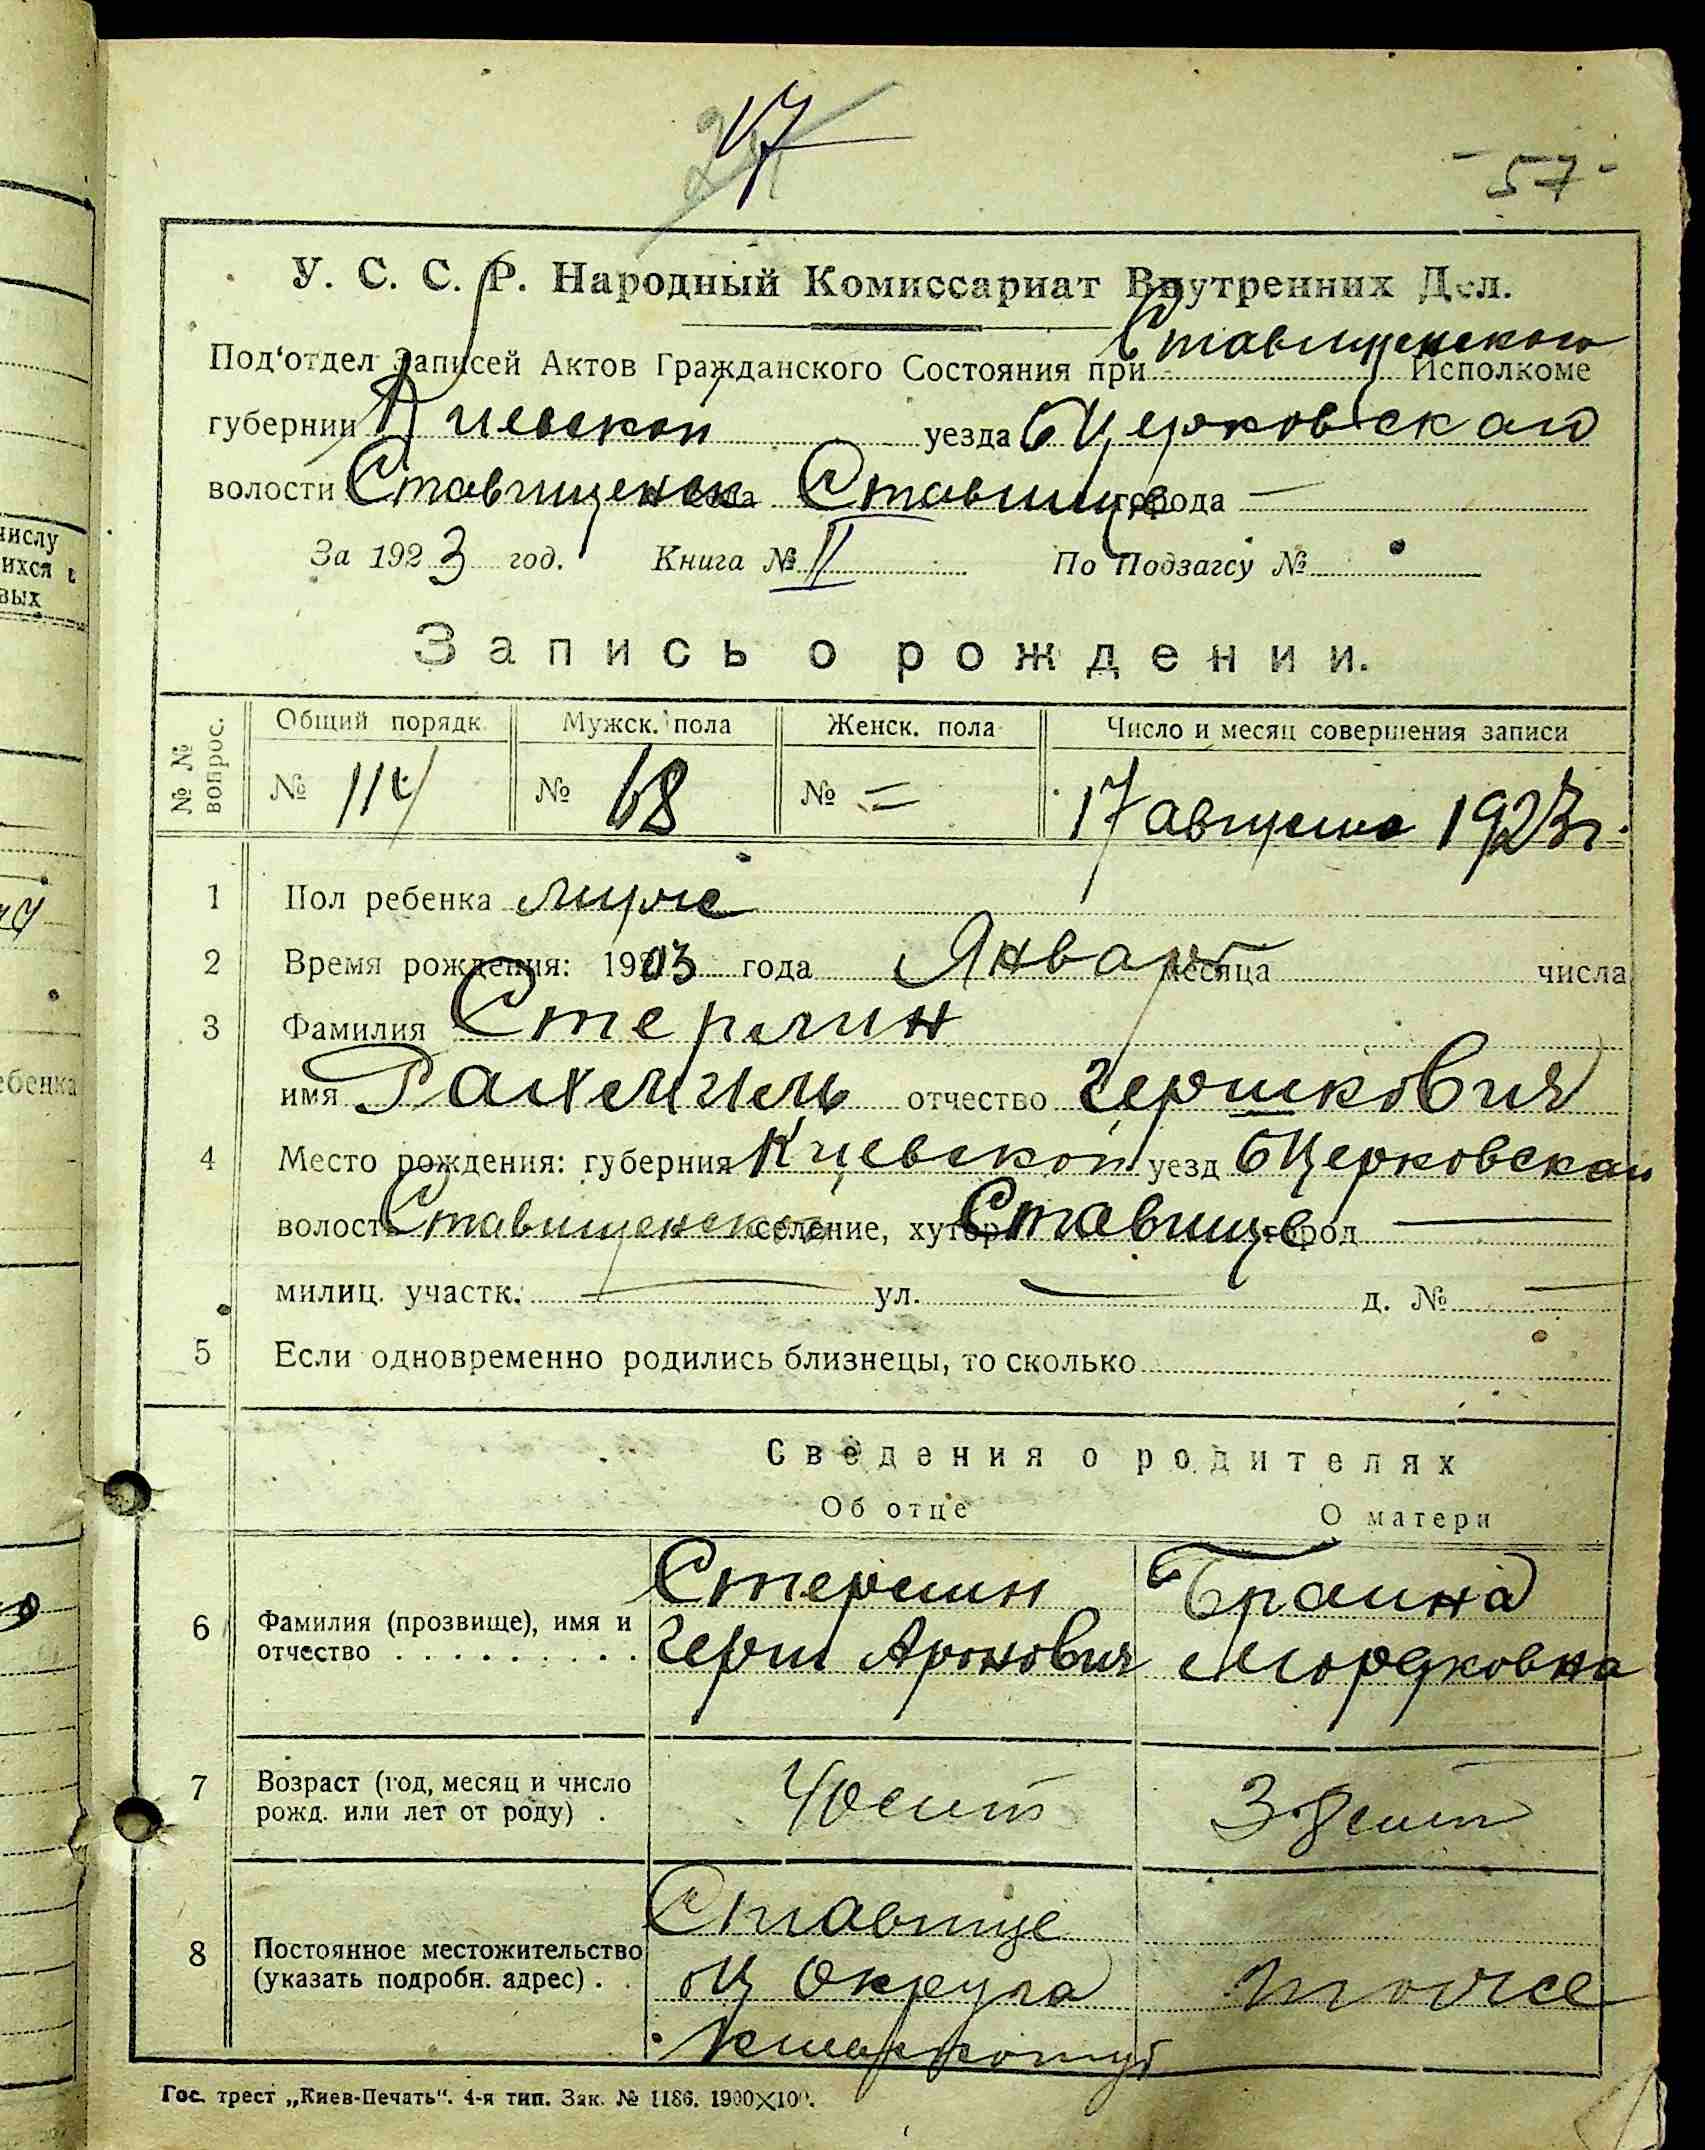 17
- 57 -
У. С. С. Р. Народный Комиссариат Внутренних Дел.
Под'отдел Записей Актов Гражданского Состояния при Ставищенского Исполкоме
губернии Киевской уезда БЦерковской
волости Ставищенск села Ставище города —
За 1923 год. Книга № II По Подзагсу №
Запись о рождении.
№ № вопрос. Общий порядк. Мужск. пола Женск. пола Число и месяц совершения записи
№ 114 № 68 № = 17 августа 1923 г.
1 Пол ребенка муже
2 Время рождения: 1903 года Январ месяца числа
3 Фамилия Стерлин
имя Рахмиль отчество Гершкович
4 Место рождения: губерния Киевской уезд БЦерковской
волость Ставищенской селение, хутор Ставище город —
милиц. участк. — ул. — д. № —
5 Если одновременно родились близнецы, то сколько
Сведения о родителях
Об отце О матери
6 Фамилия (прозвище), имя и отчество Стерлин Герш Аронович Браина Мордковна
7 Возраст (год, месяц и число рожд. или лет от роду) 40 лит 38 лит
8 Постоянное местожительство (указать подробн. адрес) Ставище БЦ Округа тоже
Гос. трест „Киев-Печать“. 4-я тип. Зак. № 1186. 1900×100.
числу
ихся в
вых
ебенка